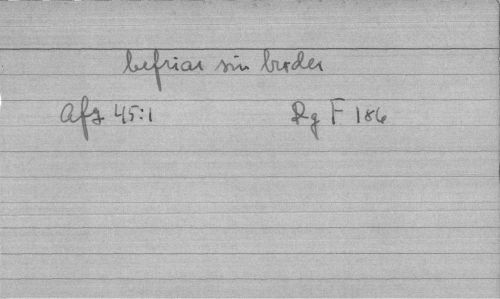 befriar sin broder
Afz 45:1 Rg F 186